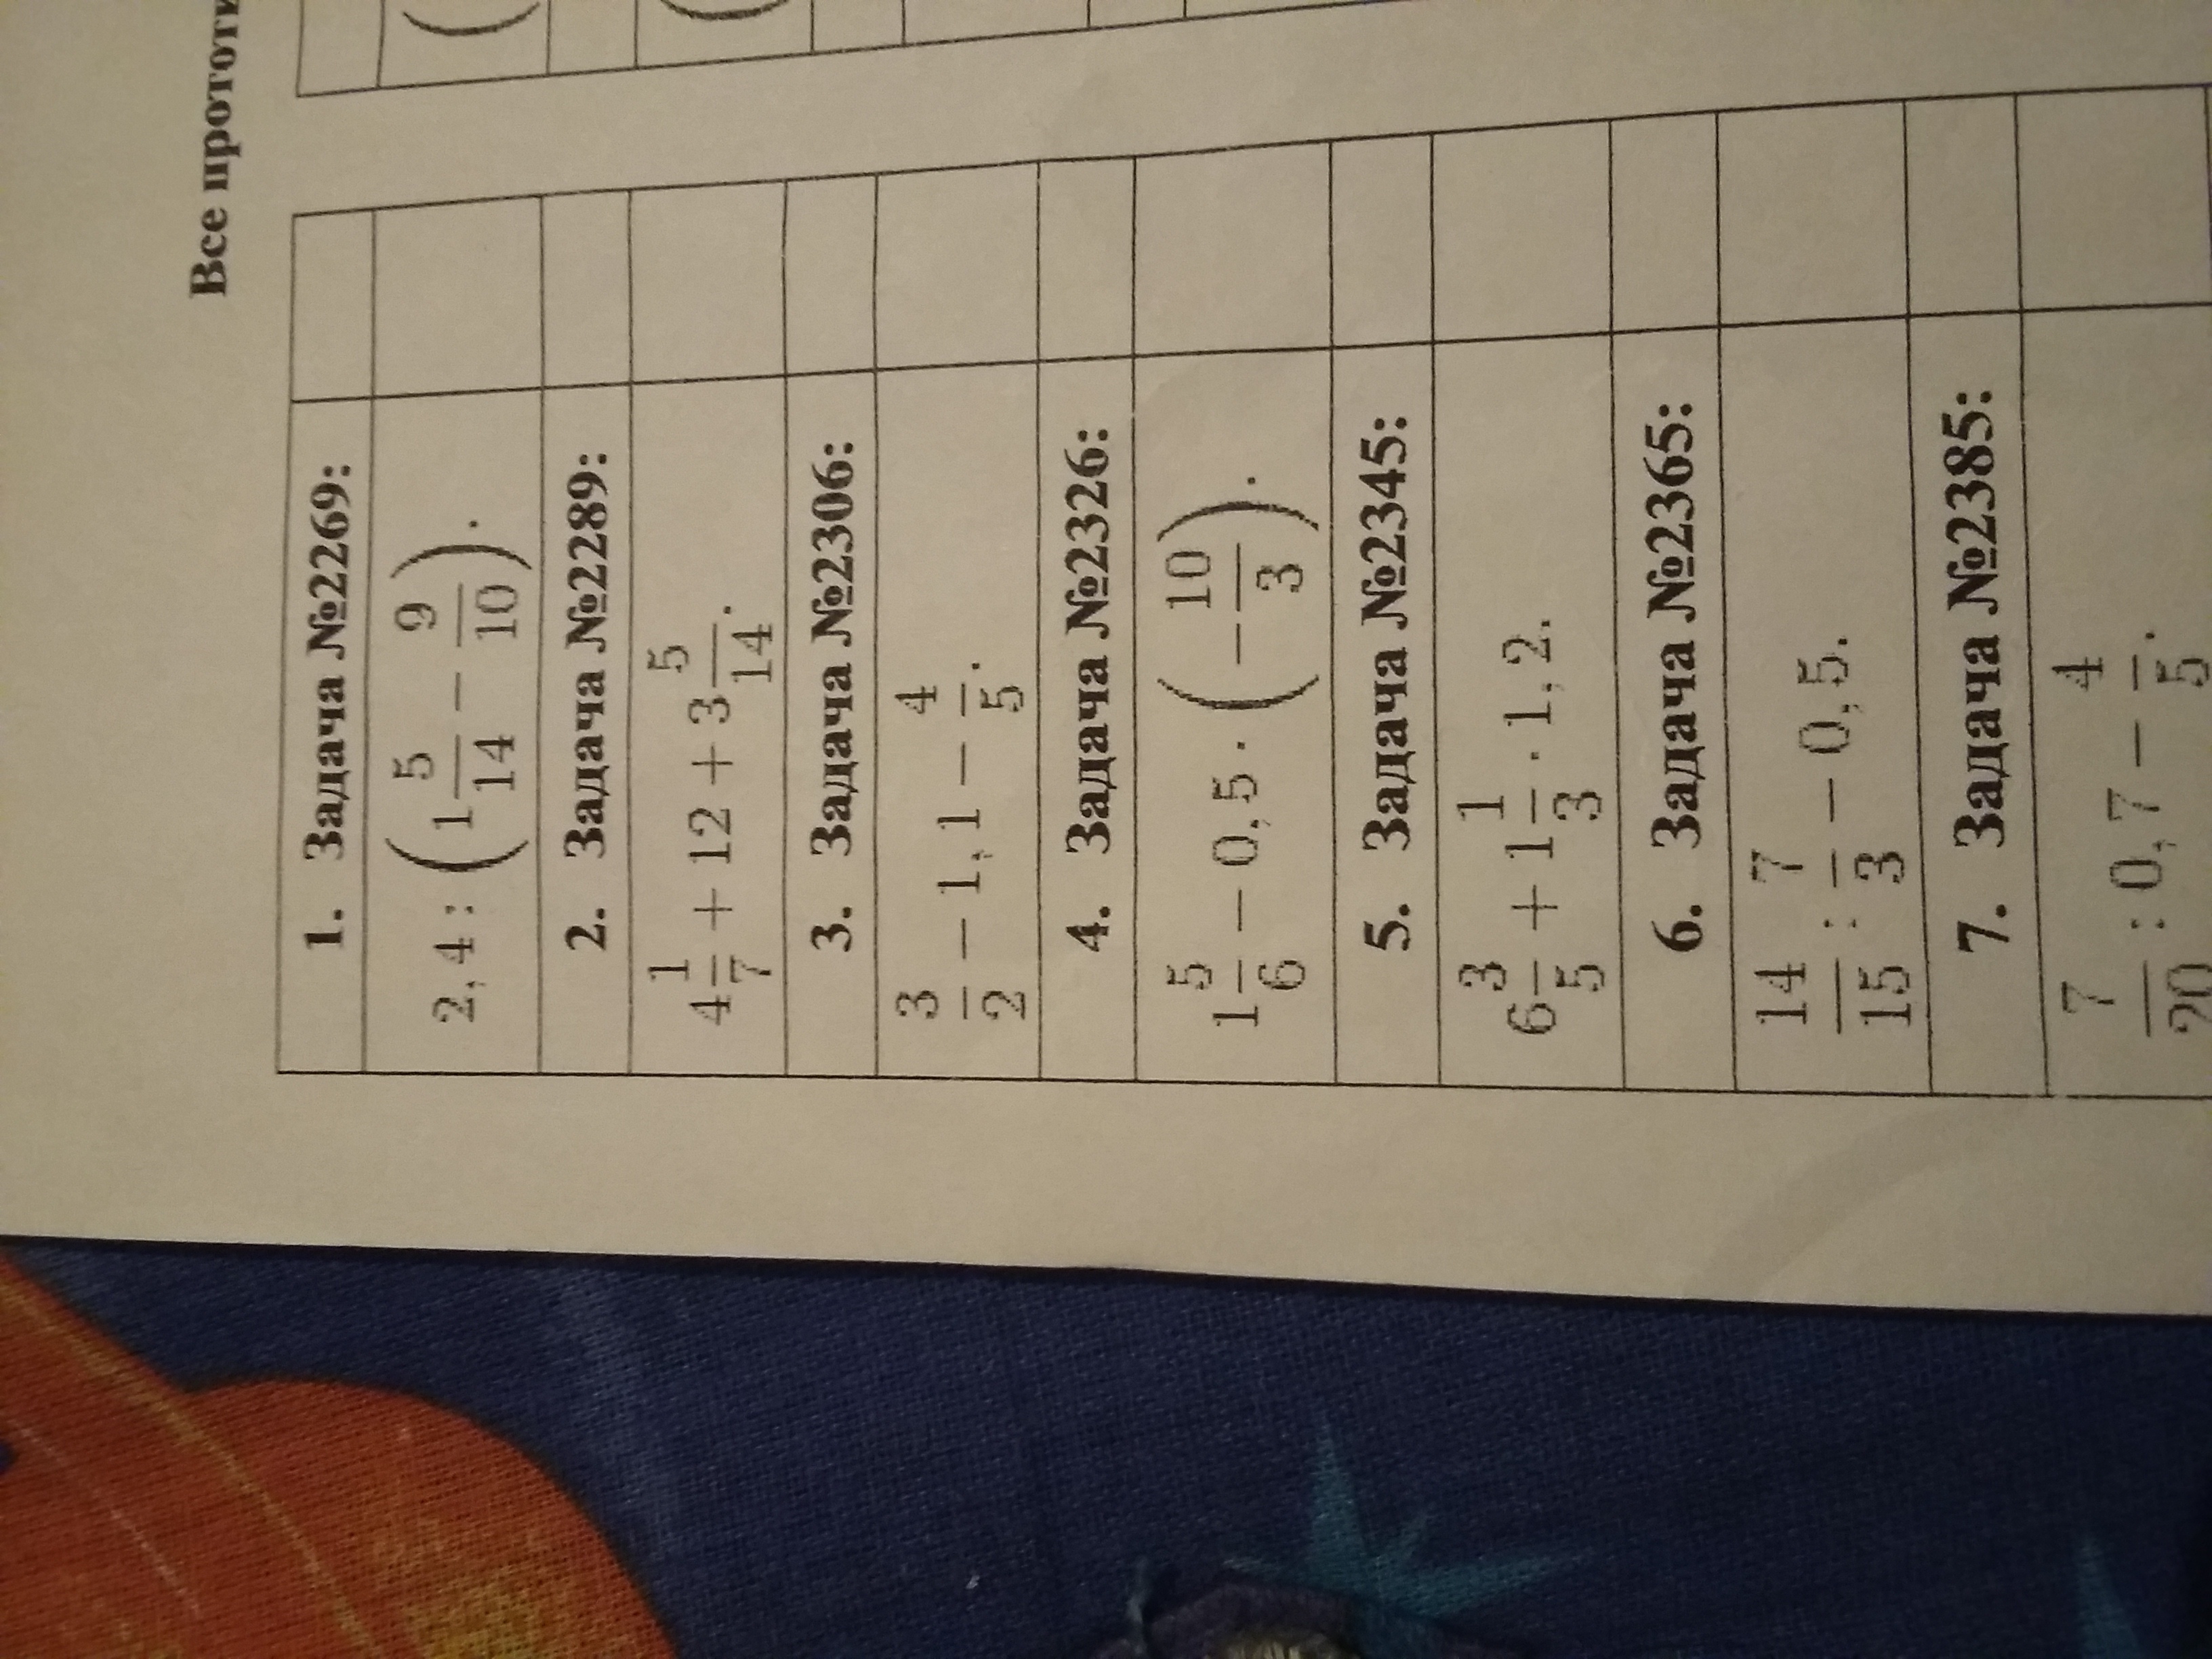 Все
1. Задача №2269:
2,4 : (1 5/14 − 9/10).
2. Задача №2289:
4 1/7 + 12 + 3 5/14.
3. Задача №2306:
3/2 − 1,1 − 4/5.
4. Задача №2326:
1 5/6 − 0,5 · (− 10/3).
5. Задача №2345:
6 3/5 + 1 1/3 · 1,2.
6. Задача №2365:
14/15 : 7/3 − 0,5.
7. Задача №2385:
7/20 : 0,7 − 4/5.
(
(